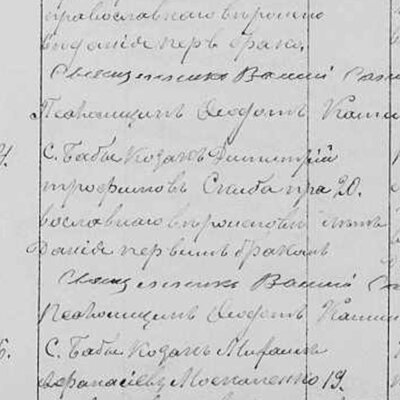 православнаго вѣроиспо
вѣданія перв. бракомъ.
Священникъ Василій
Псаломщикъ Ѳеодотъ Каши
4. С. Бабы Козакъ Димитрій
Трофимовъ Скиба пра 20.
вославнаго вѣроисповѣ лѣтъ
данія первымъ бракомъ
Священникъ Василій
Псаломщикъ Ѳеодотъ Кашин
5. С. Бабы Козакъ Михаилъ
Афанасіевъ Москаленко 19.